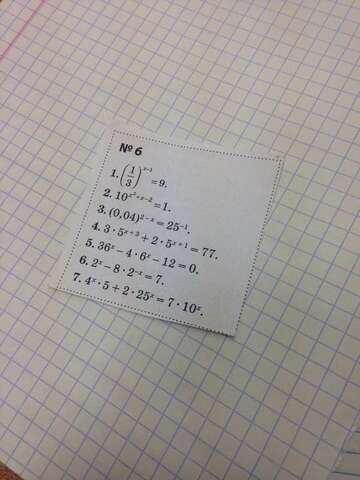 № 6
1. (1/3)^{x-1} = 9.
2. 10^{x²+x-2} = 1.
3. (0,04)^{2-x} = 25^{-1}.
4. 3 · 5^{x+3} + 2 · 5^{x+1} = 77.
5. 36^x - 4 · 6^x - 12 = 0.
6. 2^x - 8 · 2^{-x} = 7.
7. 4^x · 5 + 2 · 25^x = 7 · 10^x.